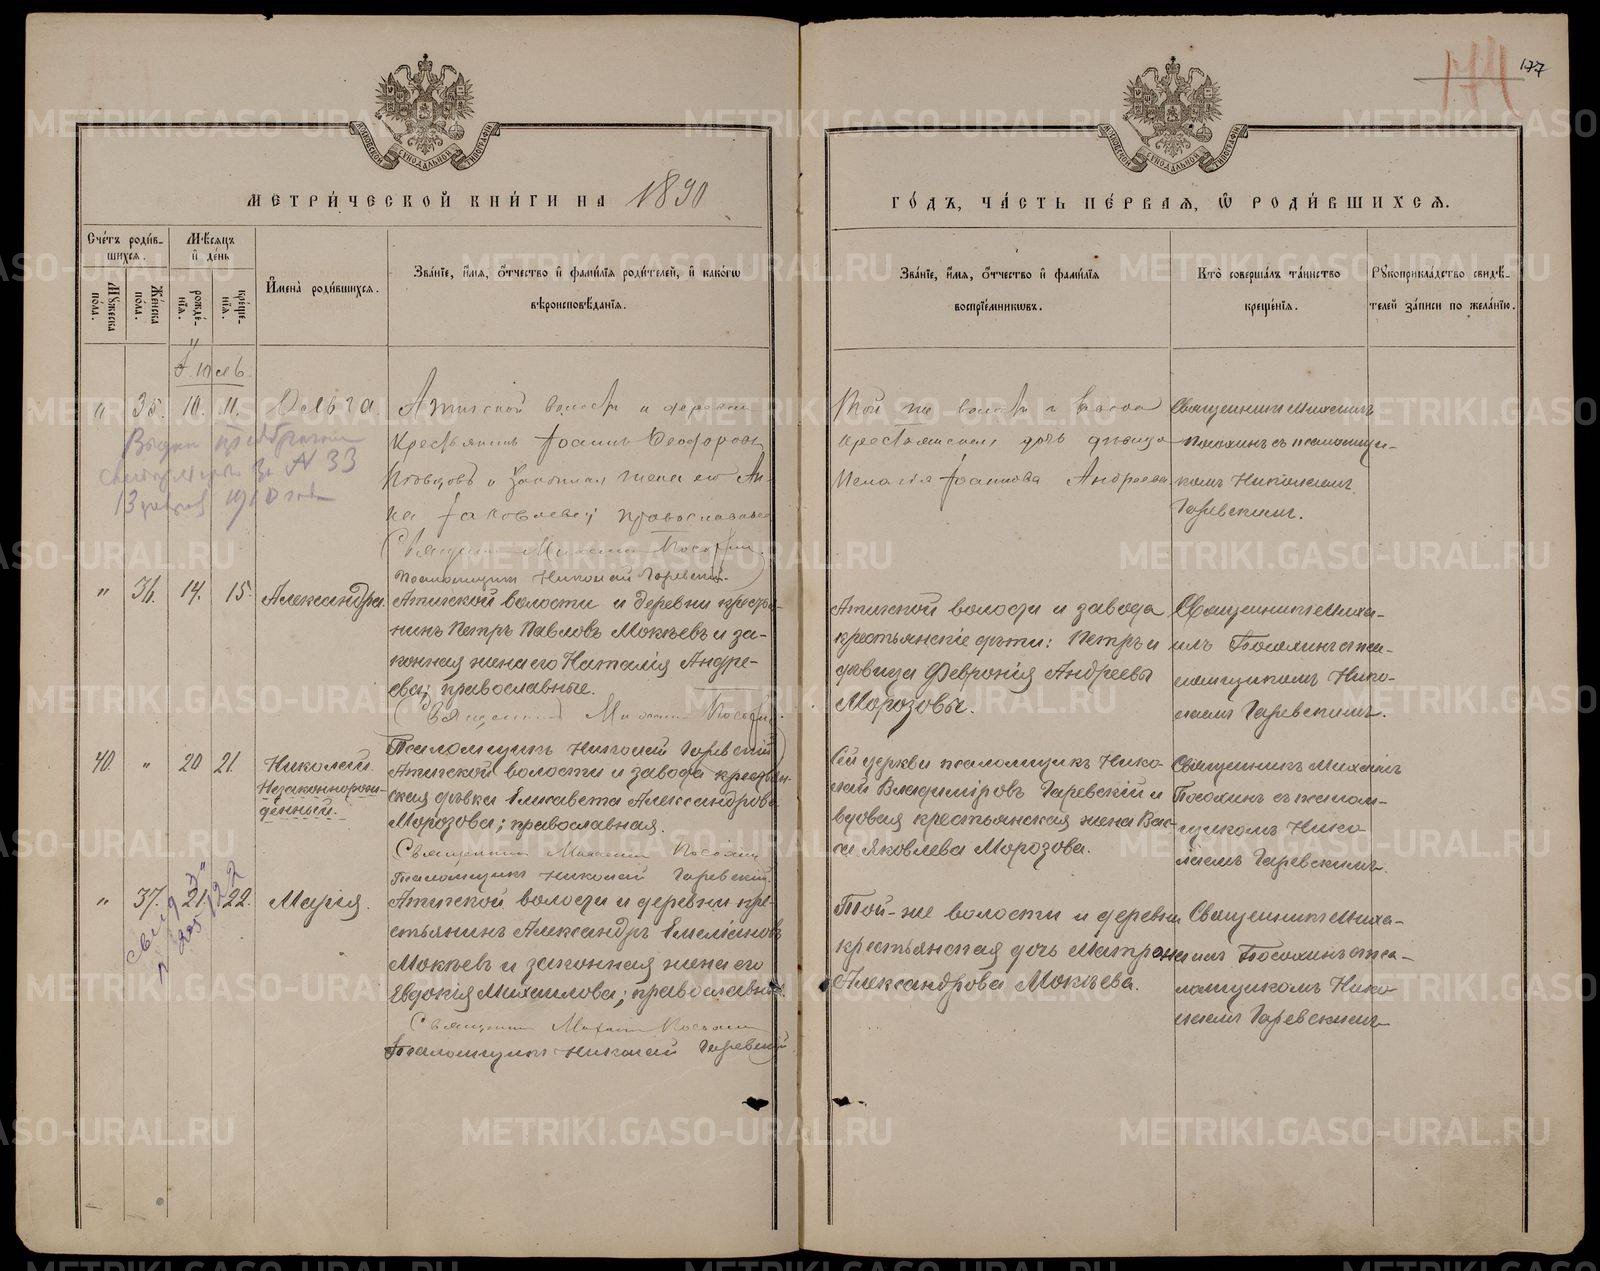 177
МОСКОВСКОЙ СѴНОДАЛЬНОЙ ТИПОГРАФІИ
МОСКОВСКОЙ СѴНОДАЛЬНОЙ ТИПОГРАФІИ
МЕТРИ́ЧЕСКОЙ КНИ́ГИ НА 1890
ГО́ДЪ, ЧА́СТЬ ПЕ́РВАЯ, Ѽ РОДИ́ВШИХСЯ.
Сче́тъ роди́в-
шихся.
Мѣ́сяцъ
и҆ де́нь
И҆мена̀ роди́вшихся.
Зва́нїе, и҆́мя, ѻ҆́тчество и҆ фами́лїя роди́телей, и҆ како́гѡ
вѣроисповѣ́данїя.
Мꙋ́жеска
по́ла.
Же́нска
по́ла.
рожде́-
нїя.
креще́-
нїя.
Зва́нїе, и҆́мя, ѻ҆́тчество и҆ фами́лїя
воспрїе́мникѡвъ.
Кто̀ соверша́лъ та́инство
креще́нїя.
Рꙋкоприкла́дство свидѣ́-
телей за́писи по жела́нїю.
Іюль
" 35. 10. 11. Ольга
Атигской волости и деревни
крестьянинъ Іоаннъ Ѳеодоровъ
и законная жена его Ан-
на Іаковлева; православные
Священникъ Михаилъ
Псаломщикъ Николай Гаревскій.
Выдано
за № 33
13 1910 года
Той же волости и завода
крестьянская дочь дѣвица
Пелагія Іоаннова Андреева
Священникъ Михаилъ
Посохинъ съ псаломщи-
комъ Николаемъ
Гаревскимъ.
" 36. 14. 15. Александра
Атигской волости и деревни крестья-
нинъ Петръ Павловъ Мокѣевъ и за-
конная жена его Наталія Андре-
ева; православные.
Священникъ Михаилъ Посохинъ.
Псаломщикъ Николай Гаревскій
Атигской волости и завода
крестьянскіе дѣти: Петръ и
дѣвица Февронія Андреевы
Морозовы.
Священникъ Миха-
илъ Посохинъ съ пса-
ломщикомъ Нико-
лаемъ Гаревскимъ.
40. " 20 21. Николай
Незаконнорож-
денный.
Атигской волости и завода крестьян-
ская дѣвка Елисавета Александрова
Морозова; православная.
Священникъ Михаилъ Посохинъ
Псаломщикъ Николай Гаревскій.
Сей церкви псаломщикъ Нико-
лай Владиміровъ Гаревскій и
вдовая крестьянская жена Вас-
са Яковлева Морозова.
Священникъ Михаилъ
Посохинъ съ псалом-
щикомъ Нико-
лаемъ Гаревскимъ.
" 37. 21. 22. Марія.
Атигской волости и деревни кре-
стьянинъ Александръ Емеліановъ
Мокѣевъ и законная жена его
Евдокія Михаилова; православные.
Священникъ Михаилъ Посохинъ
Псаломщикъ Николай Гаревскій
Той-же волости и деревни
крестьянская дочь Матрона
Александрова Мокѣева.
Священникъ Миха-
илъ Посохинъ съ пса-
ломщикомъ Нико-
лаемъ Гаревскимъ
METRIKI.GASO-URAL.RU